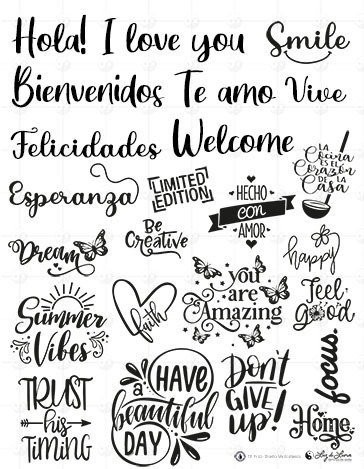 Hola! I love you Smile
Bienvenidos Te amo Vive
Felicidades Welcome
LA
Cocina
ES EL
Corazón
DE LA
Casa
Esperanza
LIMITED
EDITION
HECHO
con
AMOR
Be
Creative
Dream
happy
Summer
Vibes
faith
you
are
Amazing
Feel
Good
TRUST
his
TIMING
HAVE
a
beautiful
DAY
Don't
GIVE
up!
focus.
Home